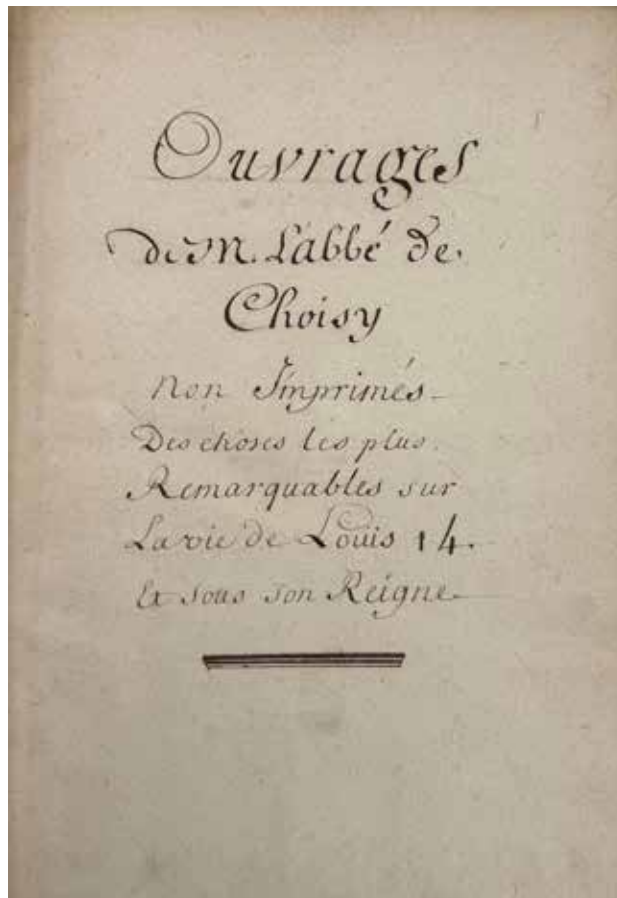 Ouvrages
de M. L'abbé de
Choisy
non Imprimés
Des choses les plus
Remarquables sur
La vie de Louis 14.
Et sous son Reigne